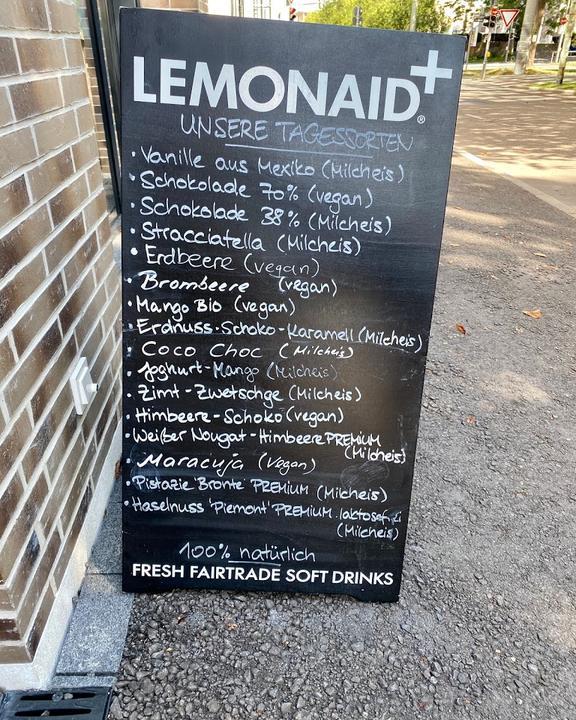 LEMONAID+®
UNSERE TAGESSORTEN
• Vanille aus Mexiko (Milcheis)
• Schokolade 70% (vegan)
• Schokolade 38% (Milcheis)
• Stracciatella (Milcheis)
• Erdbeere (vegan)
• Brombeere (vegan)
• Mango Bio (vegan)
• Erdnuss-Schoko-Karamell (Milcheis)
• Coco Choc (Milcheis)
• Joghurt-Mango (Milcheis)
• Zimt-Zwetschge (Milcheis)
• Himbeere-Schoko (vegan)
• Weißer Nougat-Himbeere PREMIUM
(Milcheis)
• Maracuja (vegan)
• Pistazie Bronte PREMIUM (Milcheis)
• Haselnuss 'Piemont' PREMIUM laktosefrei
(Milcheis)
100% natürlich
FRESH FAIRTRADE SOFT DRINKS